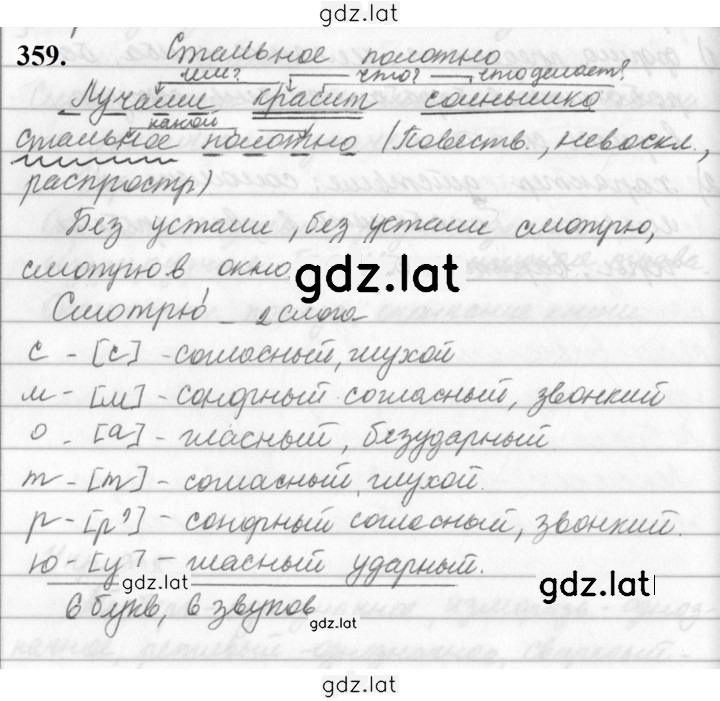 gdz.lat
359. Стальное полотно
чем? что? что делает?
Лучами красит солнышко
какой
стальное полотно (Повеств., невоскл.,
распростр)
Без устали, без устали смотрю,
смотрю в окно.
gdz.lat
Смотрю - 2 слога
с - [с] - согласный, глухой
м - [м] - сонорный согласный, звонкий
о - [а] - гласный, безударный
т - [т] - согласный, глухой.
р - [р'] - сонорный согласный, звонкий.
ю - [у] - гласный ударный.
gdz.lat
gdz.lat
6 букв, 6 звуков
gdz.lat
gdz.lat